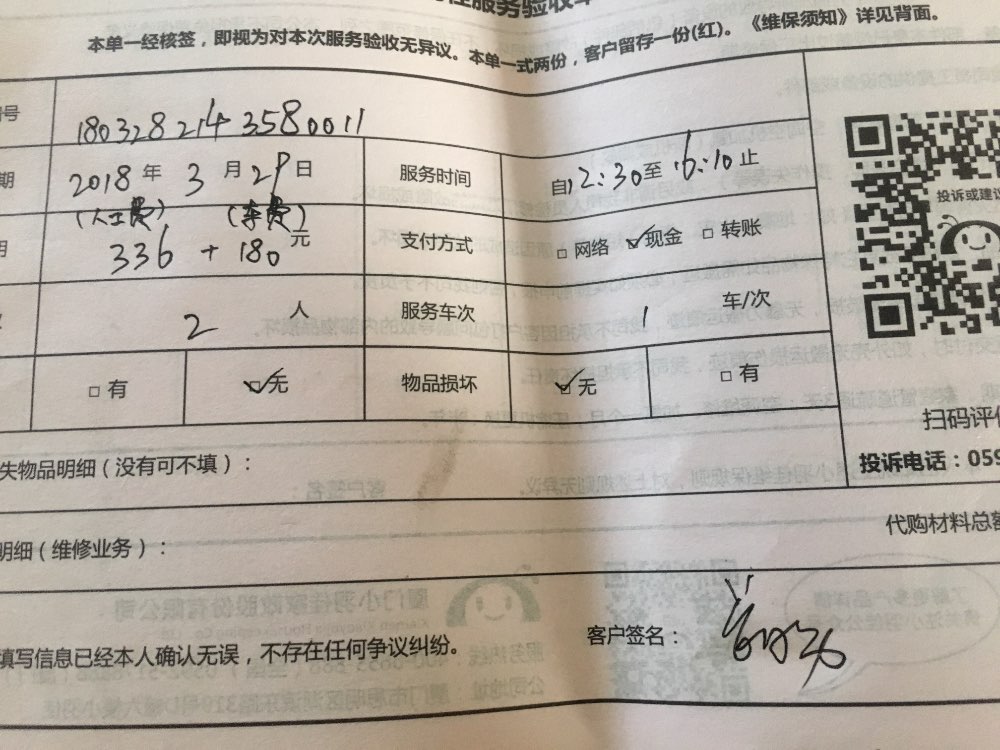 服务验收单
本单一经核签，即视为对本次服务验收无异议。本单一式两份，客户留存一份(红)。《维保须知》详见背面。
号 1803282143580011
期 2018 年 3 月 29 日 服务时间 自12:30至16:10止
(人工费) (车费)
336 + 180 元 支付方式 □ 网络 ☑ 现金 □ 转账
2 人 服务车次 1 车/次
□ 有 ☑ 无 物品损坏 ☑ 无 □ 有
投诉或建议
扫码评价
投诉电话：059
失物品明细（没有可不填）：
代购材料总额
明细（维修业务）：
填写信息已经本人确认无误，不存在任何争议纠纷。
客户签名：